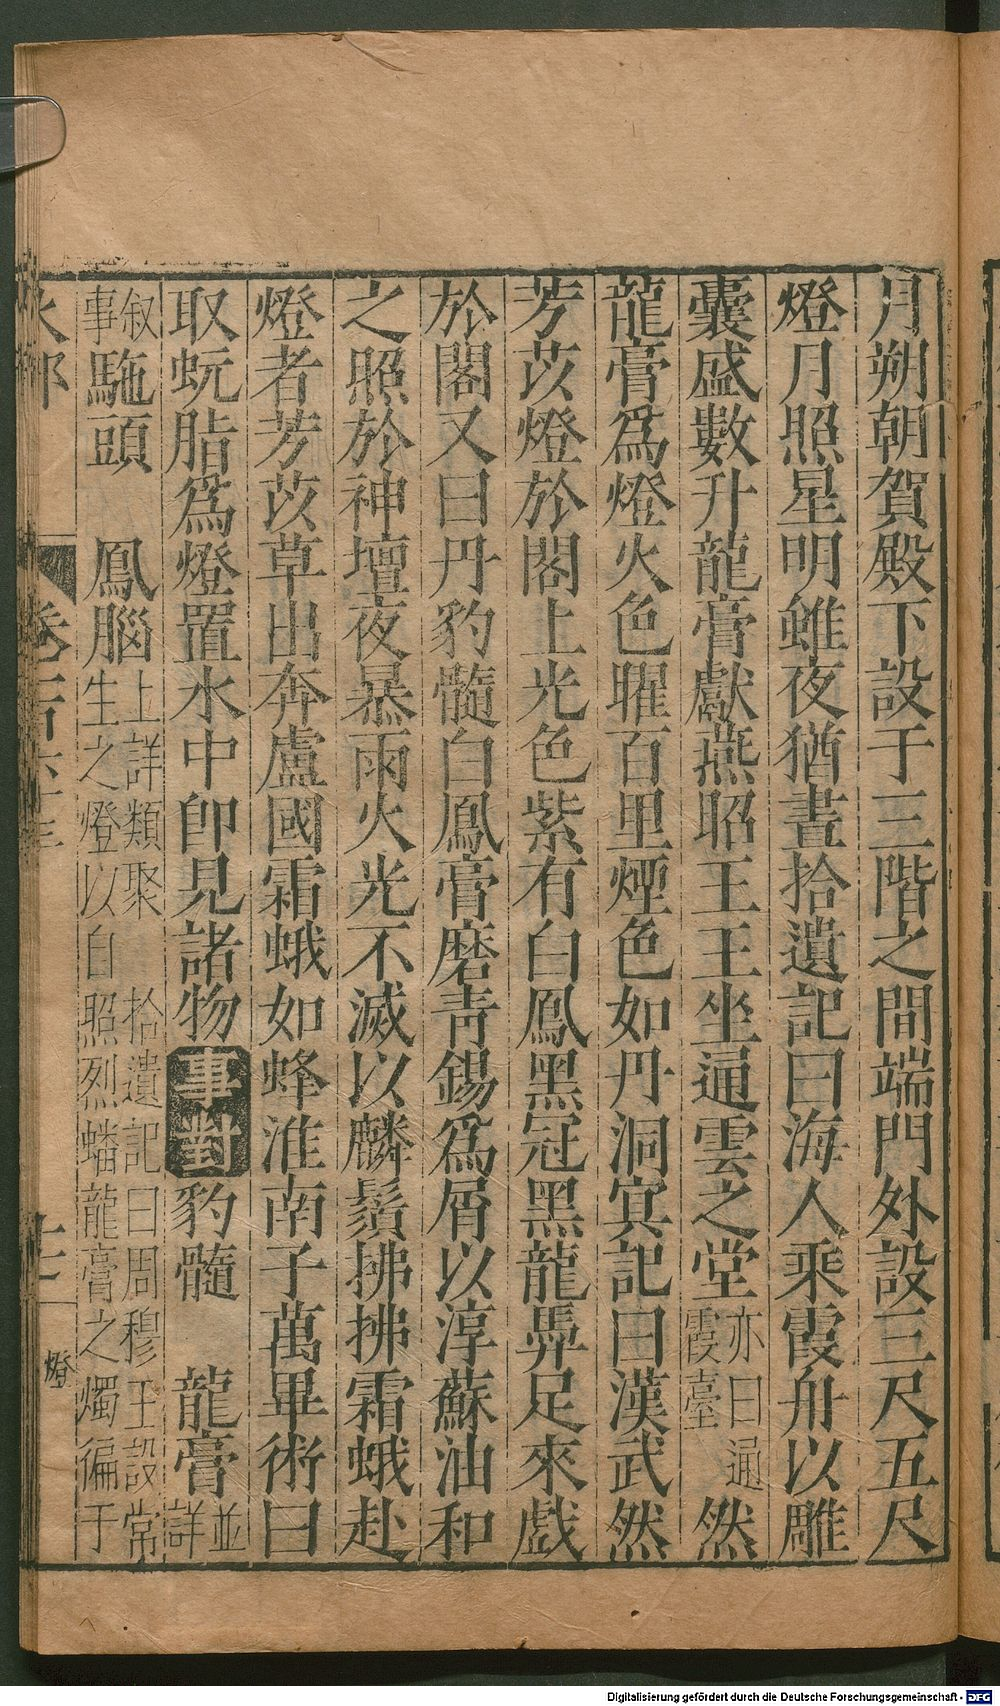 月朔朝賀殿下設于三階之間端門外設三尺五尺
燈月照星明雖夜猶晝拾遺記曰海人乘霞舟以雕
囊盛數升龍膏獻燕昭王王坐通雲之堂亦曰通霞臺然
龍膏爲燈火色曜百里煙色如丹洞冥記曰漢武然
芳苡燈於閣上光色紫有白鳳黑冠黑龍馵足來戲
於閣又曰丹豹髓白鳳膏磨青錫爲屑以淳蘇油和
之照於神壇夜暴雨火光不滅以麟鬚拂拂霜蛾赴
燈者芳苡草出奔盧國霜蛾如蜂淮南子萬畢術曰
取蚖脂爲燈置水中卽見諸物事對豹髓 龍膏並詳
叙事駞頭 鳳腦上詳類聚 拾遺記曰周穆王設常生之燈以自照烈蟠龍膏之燭徧于
火部 卷 燈
Digitalisierung gefördert durch die Deutsche Forschungsgemeinschaft - DFG